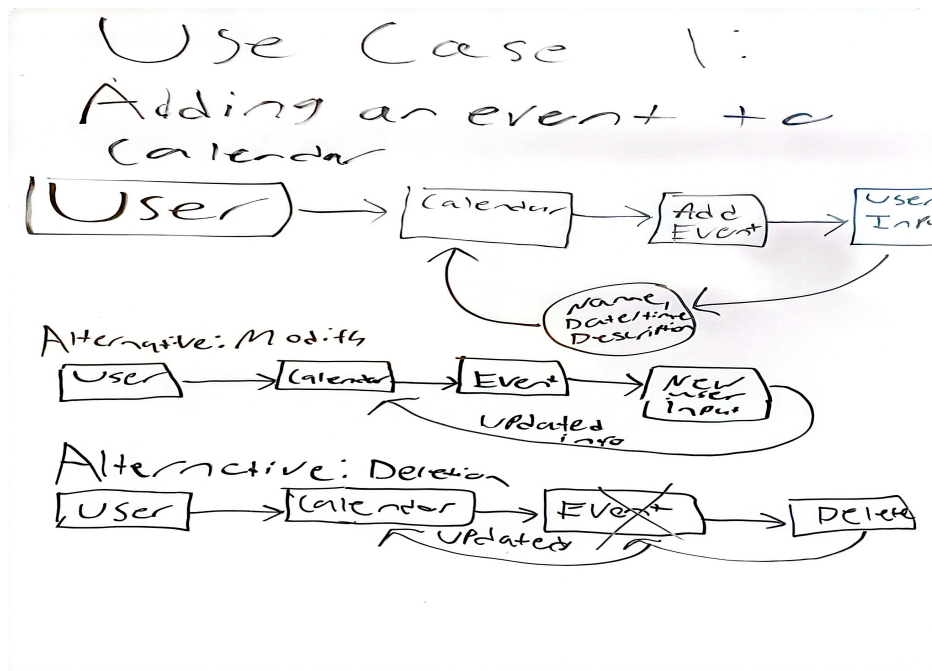 Use Case 1:
Adding an event to
Calendar
User
Calendar
Add
Event
User
Inpu
Name,
Date/time
Description
Alternative: Modify
User
Calendar
Event
New
user
Input
updated
info
Alternative: Deletion
User
Calendar
Event
Delete
updated